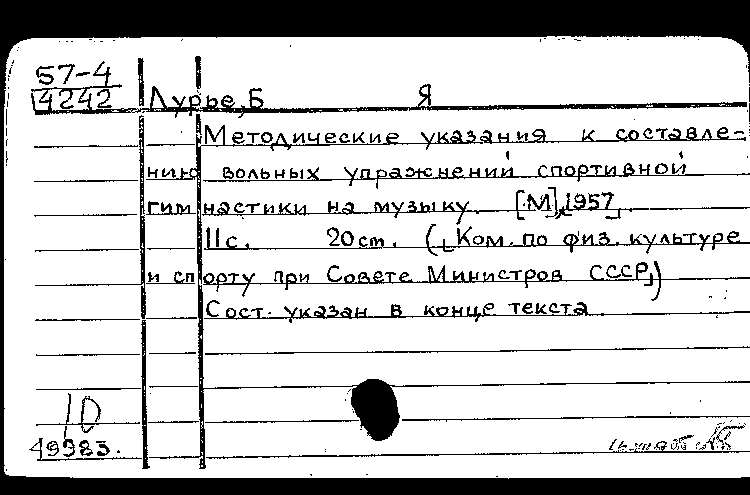 57-4
14242
Лурье, Б Я
Методические указания к составле-
нию вольных упражнений спортивной
гимнастики на музыку. [М], 1957.
11с. 20см. (Ком. по физ. культуре
и спорту при Совете Министров СССР)
Сост. указан в конце текста.
10
49983.